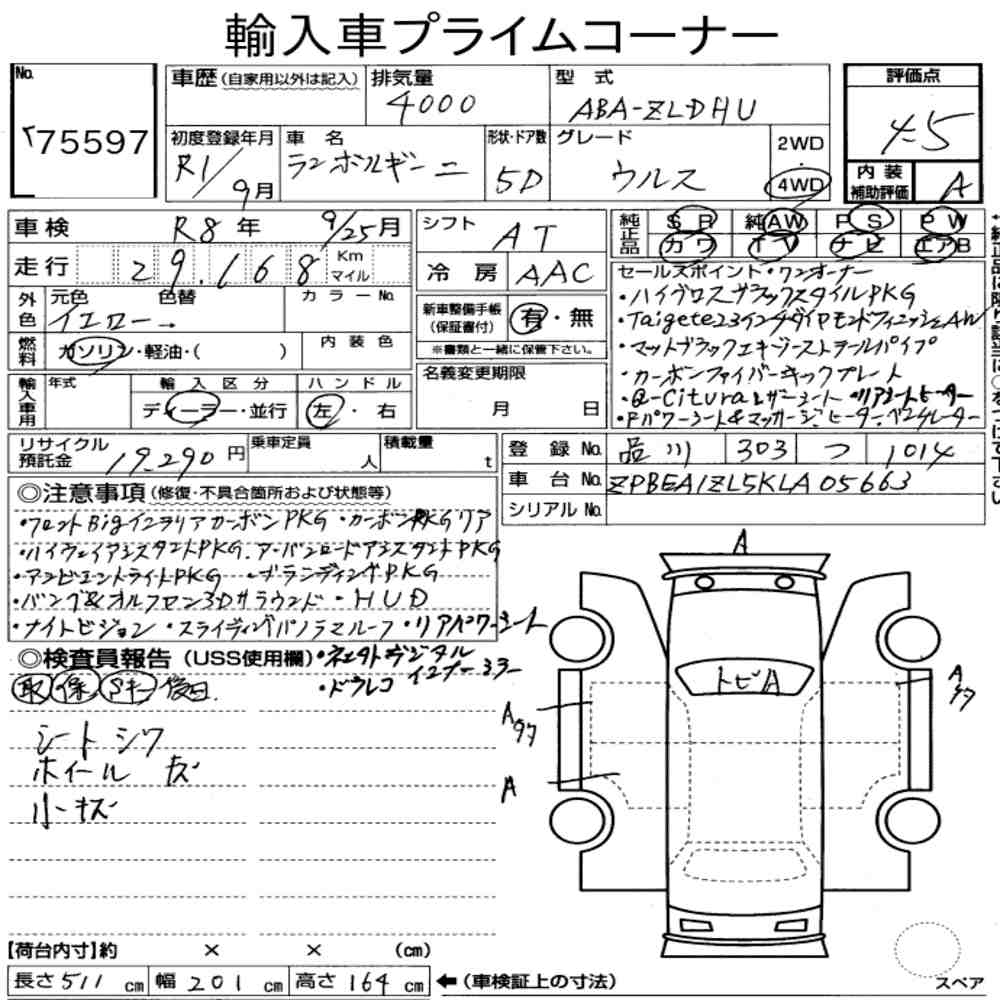 輸入車プライムコーナー
No.
75597
車歴 (自家用以外は記入)
排気量
4000
型式
ABA-ZLDHU
評価点
4.5
初度登録年月
R1/9月
車名
ランボルギーニ
形状・ドア数
5D
グレード
ウルス
2WD
・
4WD
内装
補助評価
A
車検
R8年 9/25月
走行
29.168
Km
マイル
シフト
AT
冷房
AAC
純正品
SR 純AW PS PW
カワ TV ナビ エアB
外色
元色 色替
イエロー→
カラーNo.
内装色
燃料
ガソリン・軽油・( )
新車整備手帳
(保証書付)
有・無
※書類と一緒に保管下さい。
セールスポイント・ワンオーナー
・ハイグロスブラックスタイルPKG
・Taigete23インチダイヤモンドフィニッシュAW
・マットブラックエキゾーストテールパイプ
・カーボンファイバーキックプレート
・Q-Citturaレザーシート ・リアシートヒーター
・Fパワーシート&マッサージ、ヒーター、ベンチレーター
輸入車用
年式
輸入区分
ディーラー・並行
ハンドル
左・右
名義変更期限
月 日
リサイクル
預託金
19.290円
乗車定員
人
積載量
t
登録No.
品川 303 つ 1014
車台No.
ZPBEA1ZL5KLA05663
シリアルNo.
◎注意事項 (修復・不具合箇所および状態等)
・フロントBigインテリアカーボンPKG ・カーボンPKGリア
・ハイウェイアシスタントPKG、アーバンロードアシスタントPKG
・アンビエントライトPKG ・ブランディングPKG
・バング&オルフセン3Dサラウンド ・HUD
・ナイトビジョン ・スライディングパノラマルーフ ・リアパワーシート
◎検査員報告 (USS使用欄)
・ネオトデジタルインナーミラー
・ドラレコ
取 保 Sキー 後日
シートシワ
ホイール キズ
小キズ
A
トビA
A
A
A
【荷台内寸】約 × × (cm)
長さ511cm 幅201cm 高さ164cm
←(車検証上の寸法)
スペア